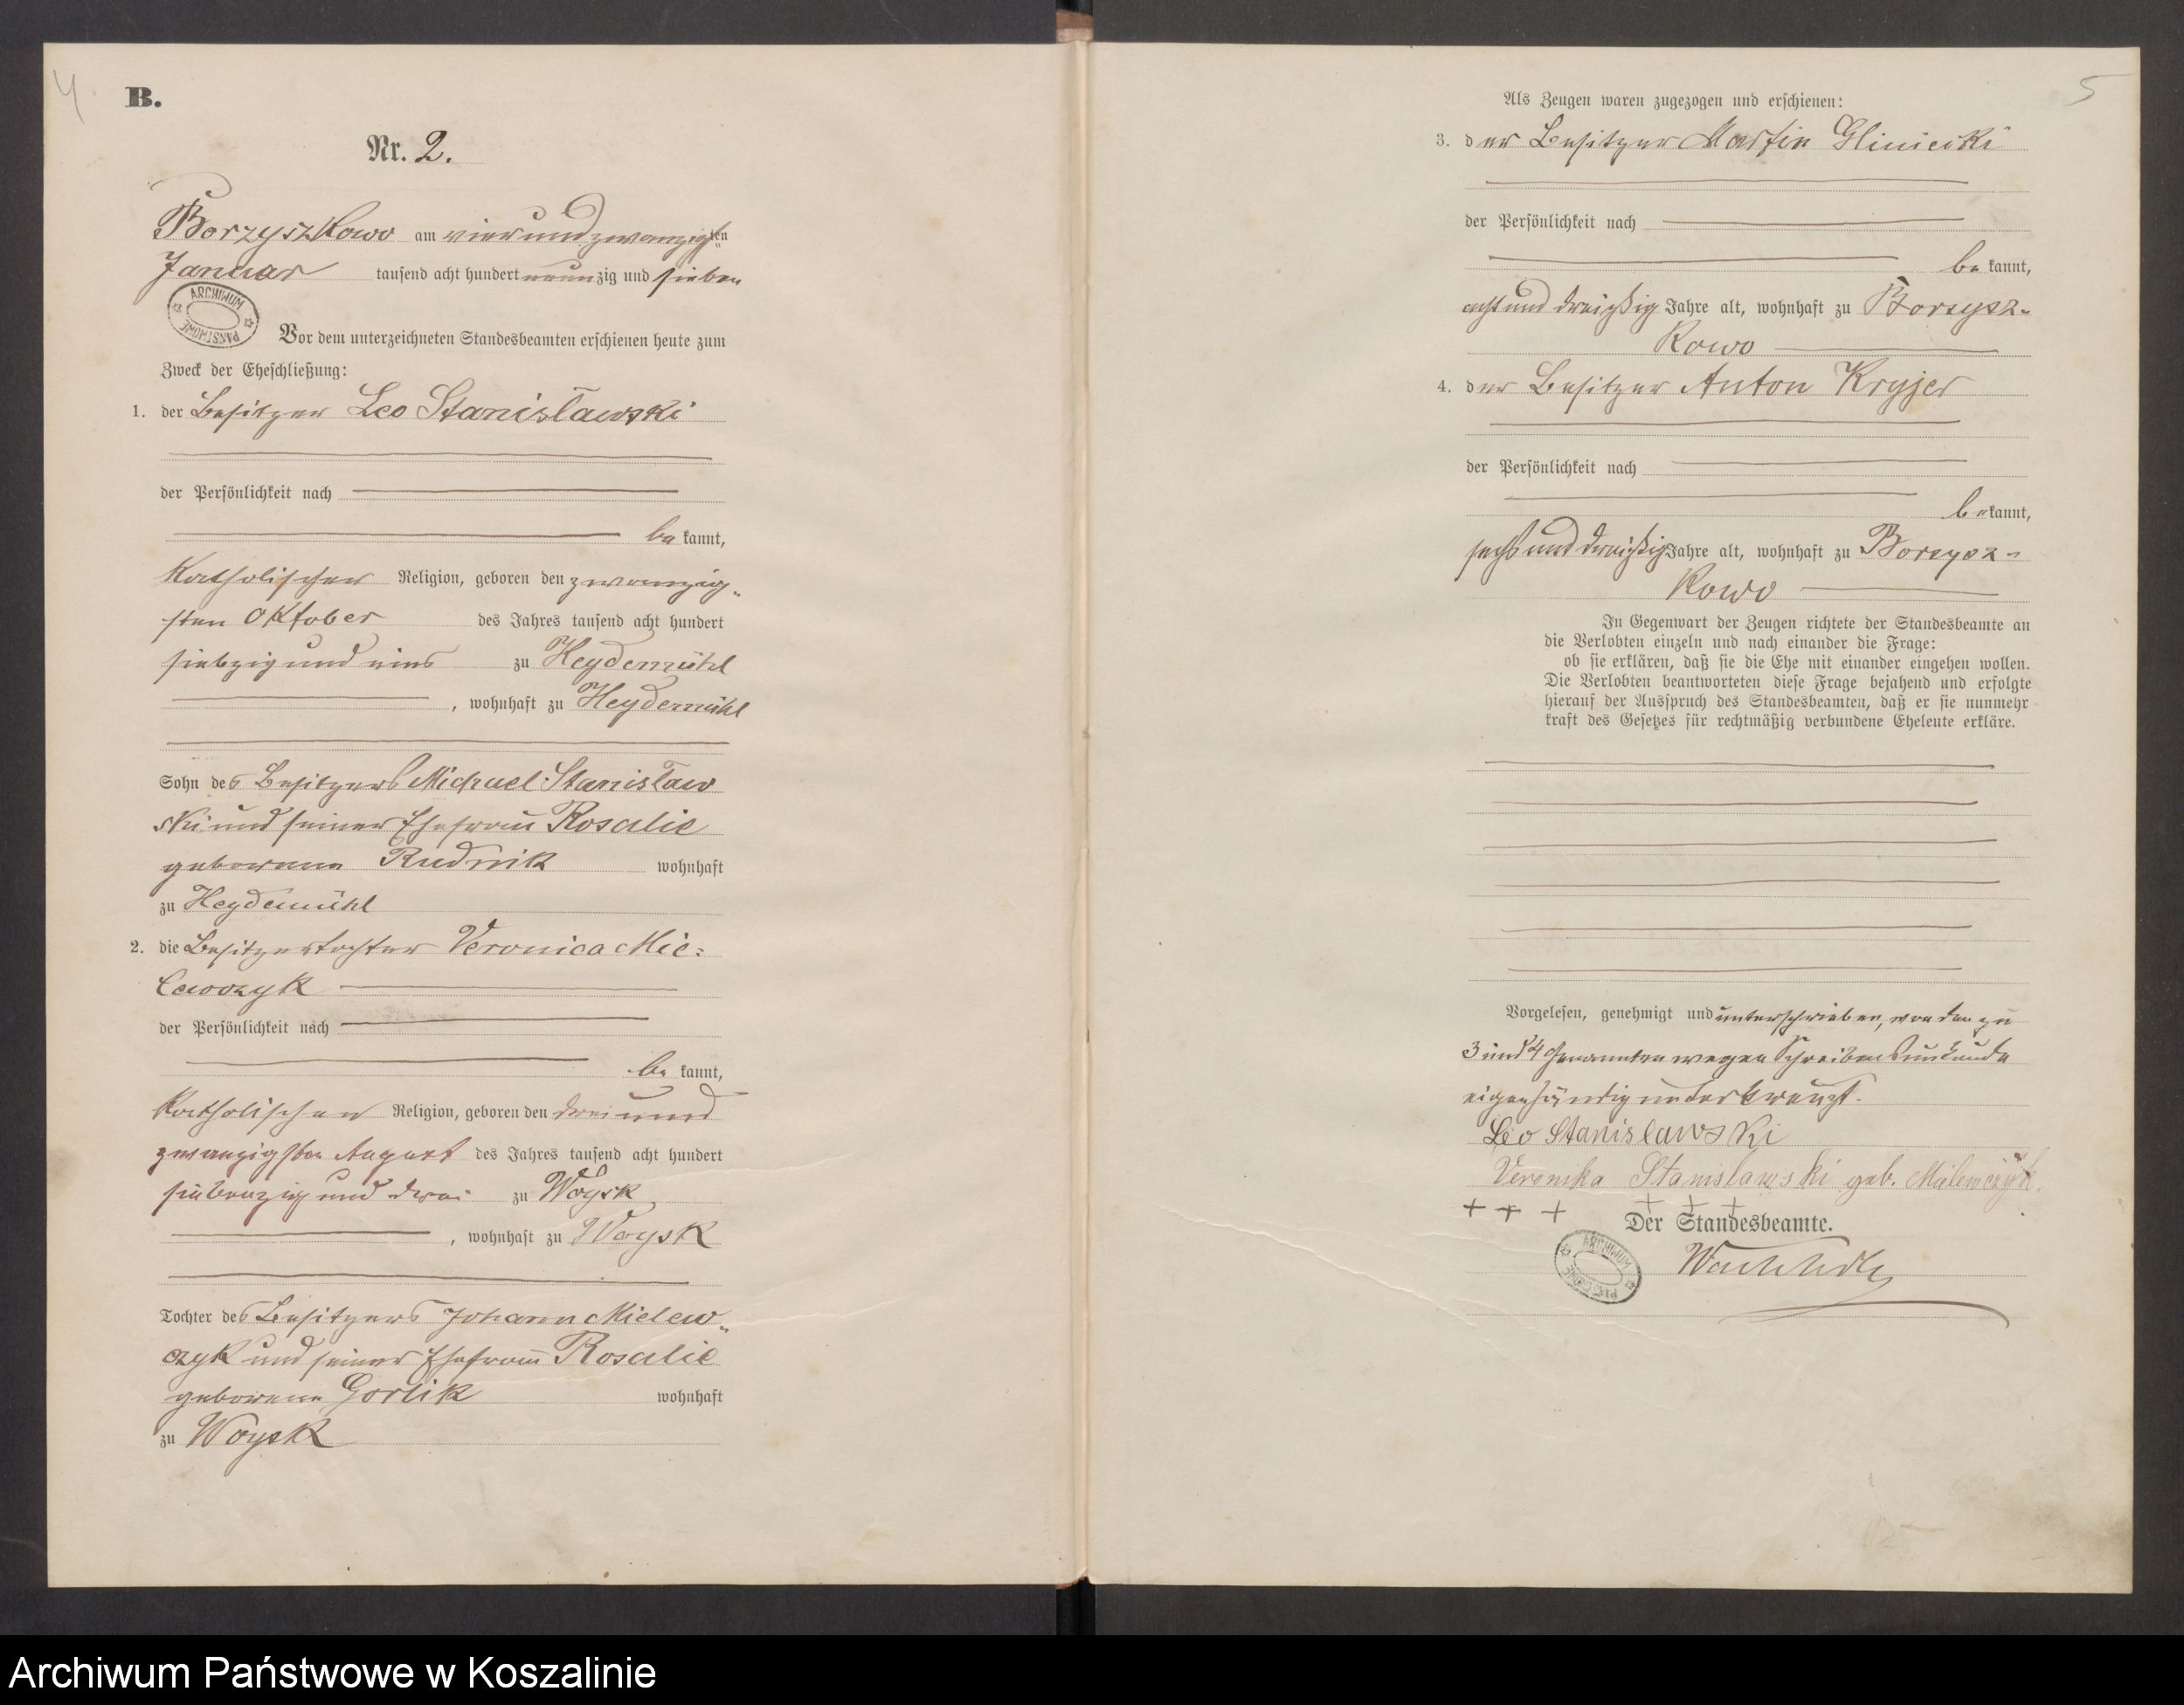 4
B.
Nr. 2.
Borzyszkowo am vierundzwanzigsten
Januar tausend acht hundert neunzig und sieben
ARCHIWUM PAŃSTWOWE
Vor dem unterzeichneten Standesbeamten erschienen heute zum
Zweck der Eheschließung:
1. der Besitzer Leo Stanisławski
der Persönlichkeit nach
be kannt,
katholischer Religion, geboren den zwanzig-
sten Oktober des Jahres tausend acht hundert
siebzig und eins zu Heydemühl
, wohnhaft zu Heydemühl
Sohn des Besitzers Michael Stanisław
ski und seiner Ehefrau Rosalie
geborenen Rudnik wohnhaft
zu Heydemühl
2. die Besitzertochter Veronica Mie-
lewczyk
der Persönlichkeit nach
be kannt,
katholischer Religion, geboren den drei und
zwanzigsten August des Jahres tausend acht hundert
siebenzig und drei zu Woysk
, wohnhaft zu Woysk
Tochter des Besitzers Johann Mielew-
czyk und seiner Ehefrau Rosalie
geborenen Gorlik wohnhaft
zu Woysk
5
Als Zeugen waren zugezogen und erschienen:
3. der Besitzer Martin Gliniecki
der Persönlichkeit nach
be kannt,
acht und dreißig Jahre alt, wohnhaft zu Borzysz-
kowo
4. der Besitzer Anton Kryjer
der Persönlichkeit nach
be kannt,
sechs und dreißig Jahre alt, wohnhaft zu Borzysz-
kowo
In Gegenwart der Zeugen richtete der Standesbeamte an
die Verlobten einzeln und nach einander die Frage:
ob sie erklären, daß sie die Ehe mit einander eingehen wollen.
Die Verlobten beantworteten diese Frage bejahend und erfolgte
hierauf der Ausspruch des Standesbeamten, daß er sie nunmehr
kraft des Gesetzes für rechtmäßig verbundene Eheleute erkläre.
Vorgelesen, genehmigt und unterschrieben, von den zu
3 und 4 Genannten wegen Schreibensunkunde
eigenhändig unterkreuzt.
Leo Stanislawski
Veronika Stanislawski geb. Mielewczyk.
+ + + + + +
Der Standesbeamte.
ARCHIWUM PAŃSTWOWE
Archiwum Państwowe w Koszalinie